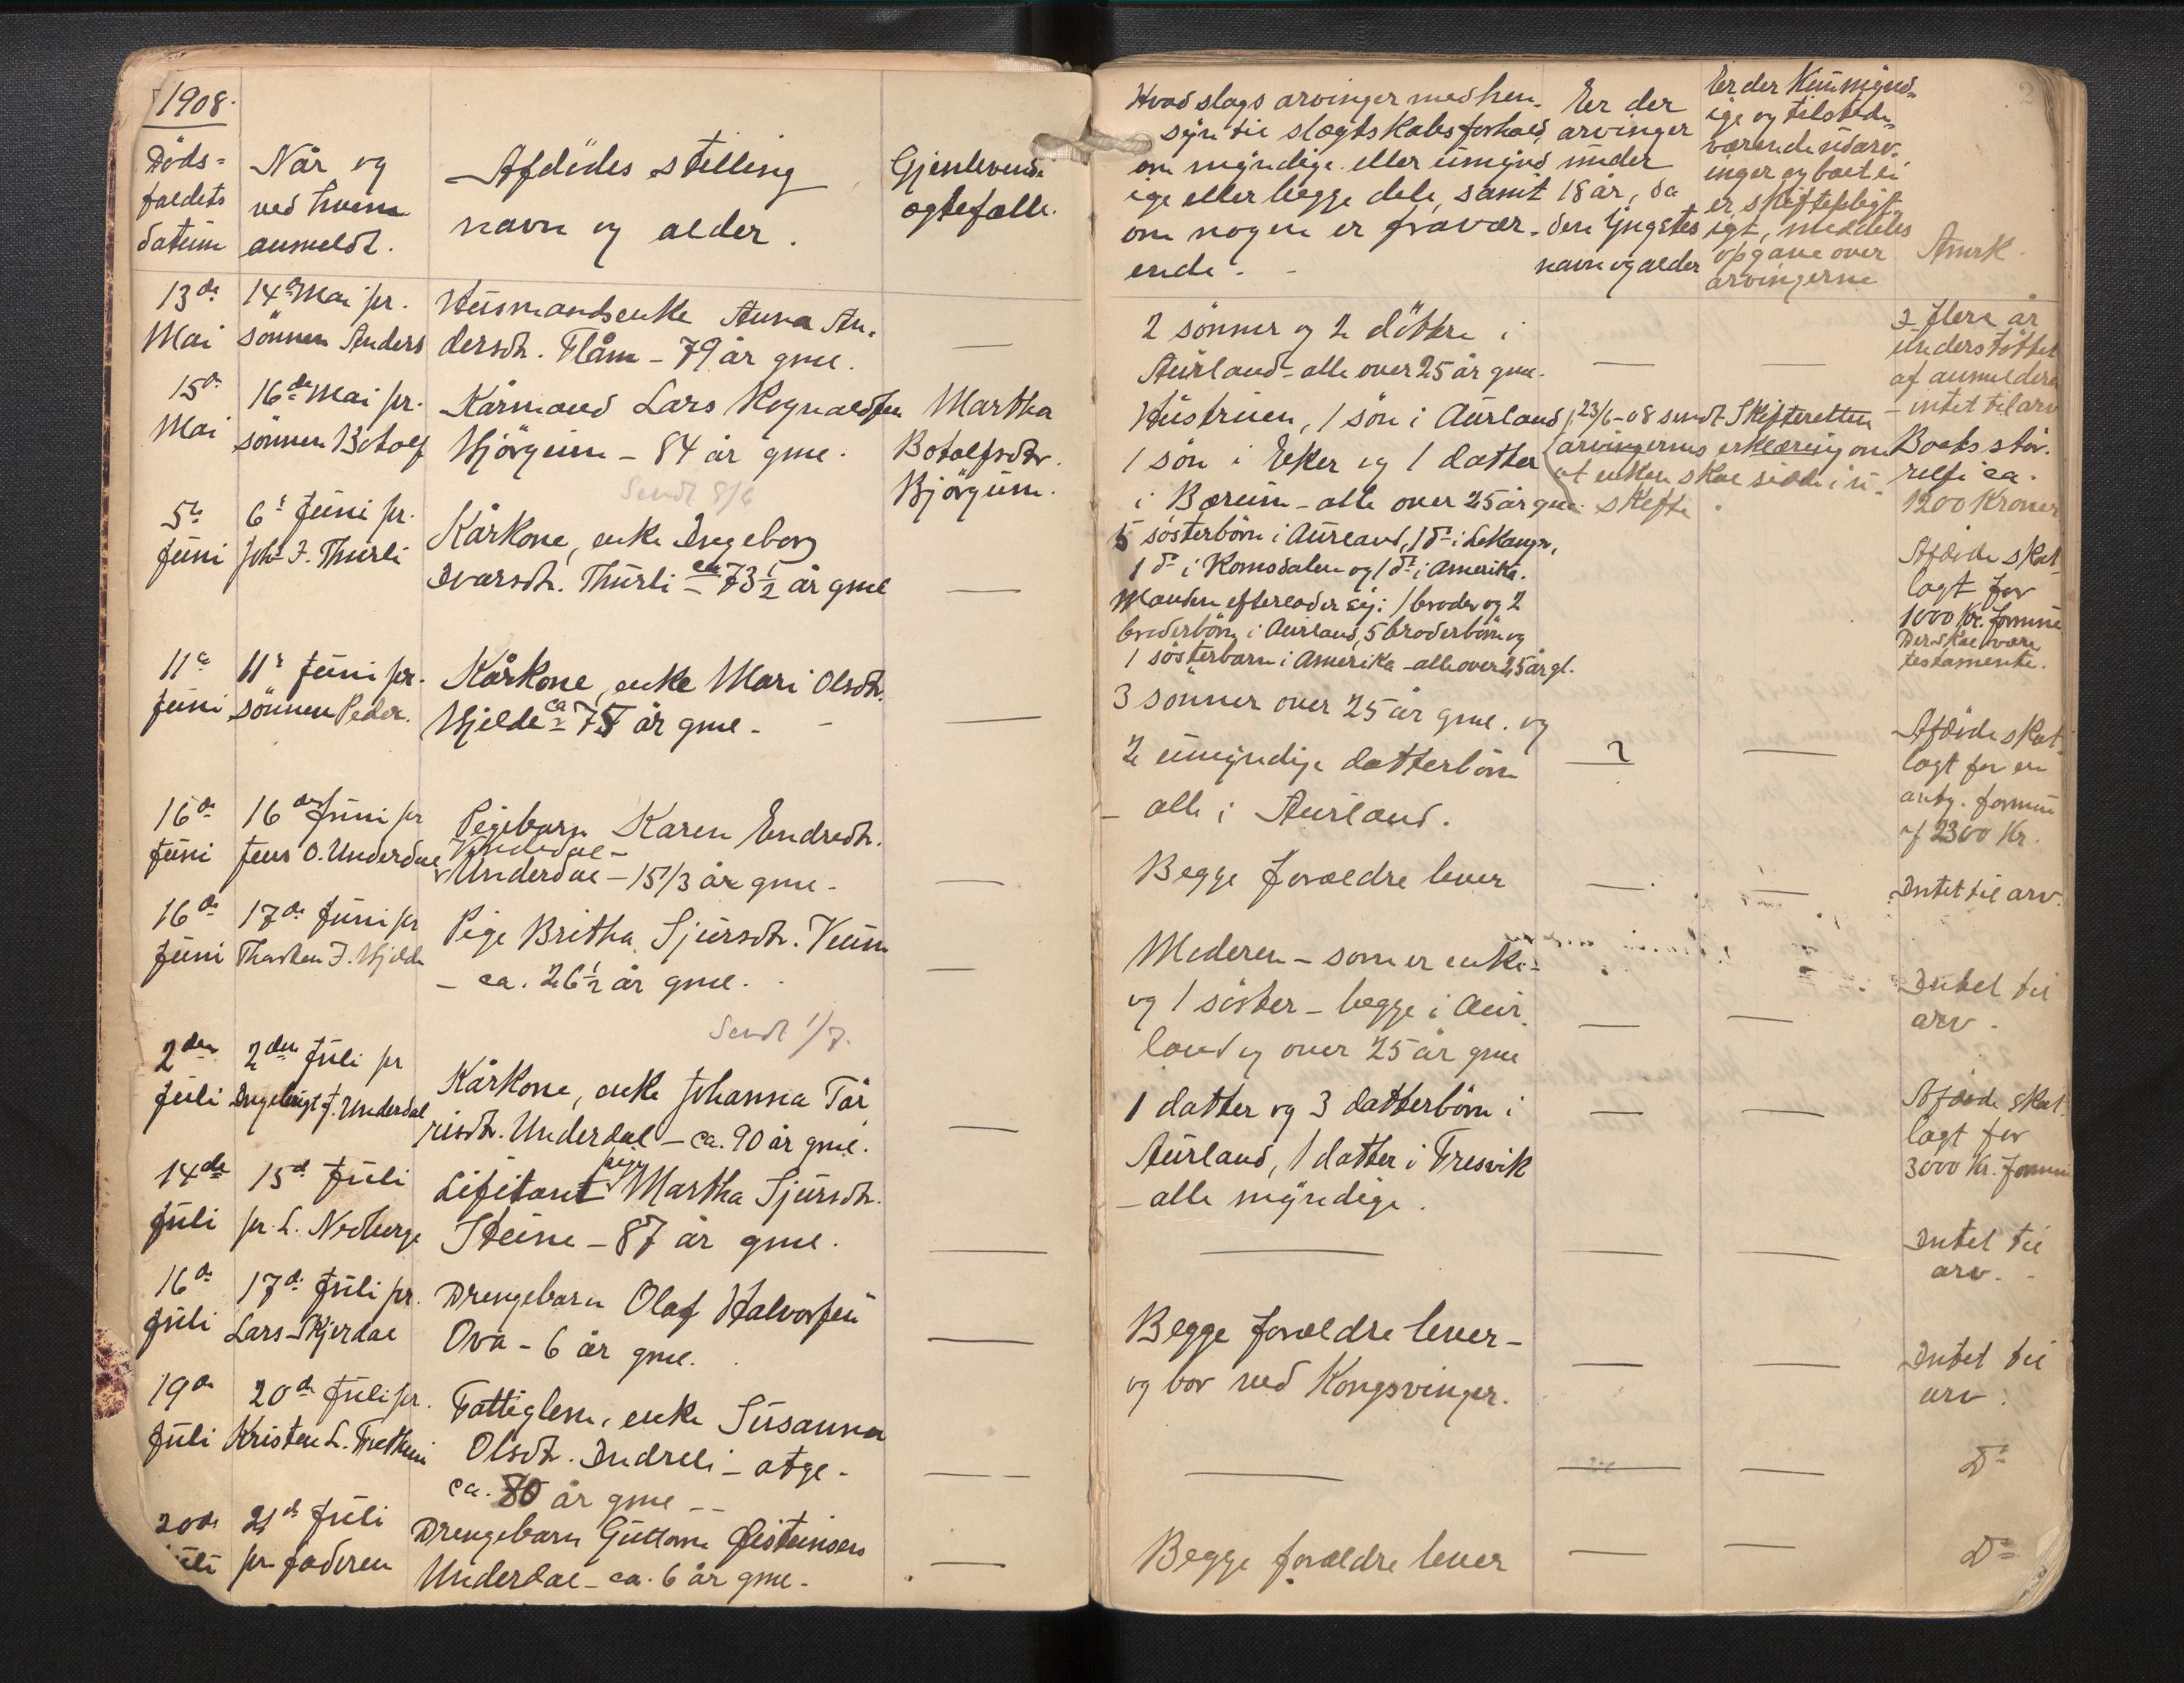 1908.
Döds=
faldets
datum
Når og
ved hvem
anmeldt.
Afdödes stilling
navn og alder.
Gjenlevende
ægtefælle.
Hvad slags arvinger med hen-
syn til slægtskabsforhold,
om myndige eller umynd
ige eller begge dele, samt
om nogen er fravær-
ende.
Er der
arvinger
under
18 år, da
den yngstes
navn og alder
Er der kun mynd-
ige og tilstede-
værende udarv-
inger og boet ei
er skiftepligt-
igt, meddeles
opgave over
arvingerne
Anmk.
2
13de
Mai
14de Mai pr.
sönnen Anders
Husmandsenke Anna An-
dersdtr. Flåm - 79 år gml.
—
2 sönner og 2 döttre i
Aurland - alle over 25 år gml.
—
—
I flere år
understöttet
af anmelderen
- intet til arv
15de
Mai
16de Mai pr.
sönnen Botolf
Kårmand Lars Rognaldsen
Bjørgum - 84 år gml.
Sendt 8/6
Martha
Botolfsdtr.
Bjørgum.
Hustruen, 1 sön i Aurland
1 sön i Eker og 1 datter
i Bærum - alle over 25 år gml.
23/6-08 sendt Skifteretten
arvingernes erklæring om
at enken skal sidde i u-
skifte.
Boets stör-
relse ca.
1200 Kroner
5te
Juni
6te Juni pr.
Johs J. Thurli
Kårkone, enke Ingeborg
Ivarsdtr. Thurli - ca 73 1/2 år gml
—
5 sösterbörn i Aurland, 1 do i Lekanger,
1 do i Romsdalen og 1 do i Amerika.
Manden efterlader sig: 1 broder og 2
broderbörn i Aurland, 5 broderbörn og
1 sösterbarn i Amerika - alle over 25 år gl.
Afdöde skat-
lagt for
1000 Kr. formue
Der skal være
testamente.
11te
Juni
11te Juni pr.
sönnen Peder.
Kårkone, enke Mari Olsdtr.
Hjelde - ca 75 år gml. -
—
3 sönner over 25 år gml. og
2 umyndige datterbörn
- alle i Aurland.
?
—
Afdöde skat-
lagt for en
antg. formue
af 2300 Kr.
16de
Juni
16de Juni pr
Jens O. Underdal
Pigebarn Karen Endredtr.
Underdal - 15 1/3 år gml -
—
Begge forældre lever
—
—
Intet til arv.
16de
Juni
17de Juni pr
Thorsten J. Hjelde
Pige Britha Sjursdtr. Veum
- ca. 26 1/2 år gml.
Sendt 1/7.
—
Moderen - som er enke -
og 1 söster - begge i Aur-
land og over 25 år gml
—
—
Intet til
arv.
2den
Juli
2den Juli pr
Ingebrigt J. Underdal
Kårkone, enke Johanna Tor
jusdtr. Underdal - ca. 90 år gml.
—
1 datter og 3 datterbörn i
Aurland, 1 datter i Fresvik
- alle myndige.
—
—
Afdöde skat-
lagt for
3000 Kr. formue
14de
Juli
15de Juli
pr. L. Nedberge
Lifitant pige Martha Sjursdtr.
Steine - 87 år gml.
—
—
—
—
Intet til
arv. -
16de
Juli
17de Juli pr.
Lars Skjerdal
Drengebarn Olaf Halvorsen
Ova - 6 år gml.
—
Begge forældre lever -
og bor ved Kongsvinger.
—
—
Intet til
arv.
19de
Juli
20de Juli pr.
Kristen L. Fretheim
Fattiglem, enke Susanna
Olsdtr. Indreli - atge -
ca. 80 år gml - -
— —
—
—
—
Do
20de
Juli
21de Juli
pr faderen
Drengebarn Guttorm Øisteinsen
Underdal - ca. 6 år gml -
—
Begge forældre lever
—
—
Do